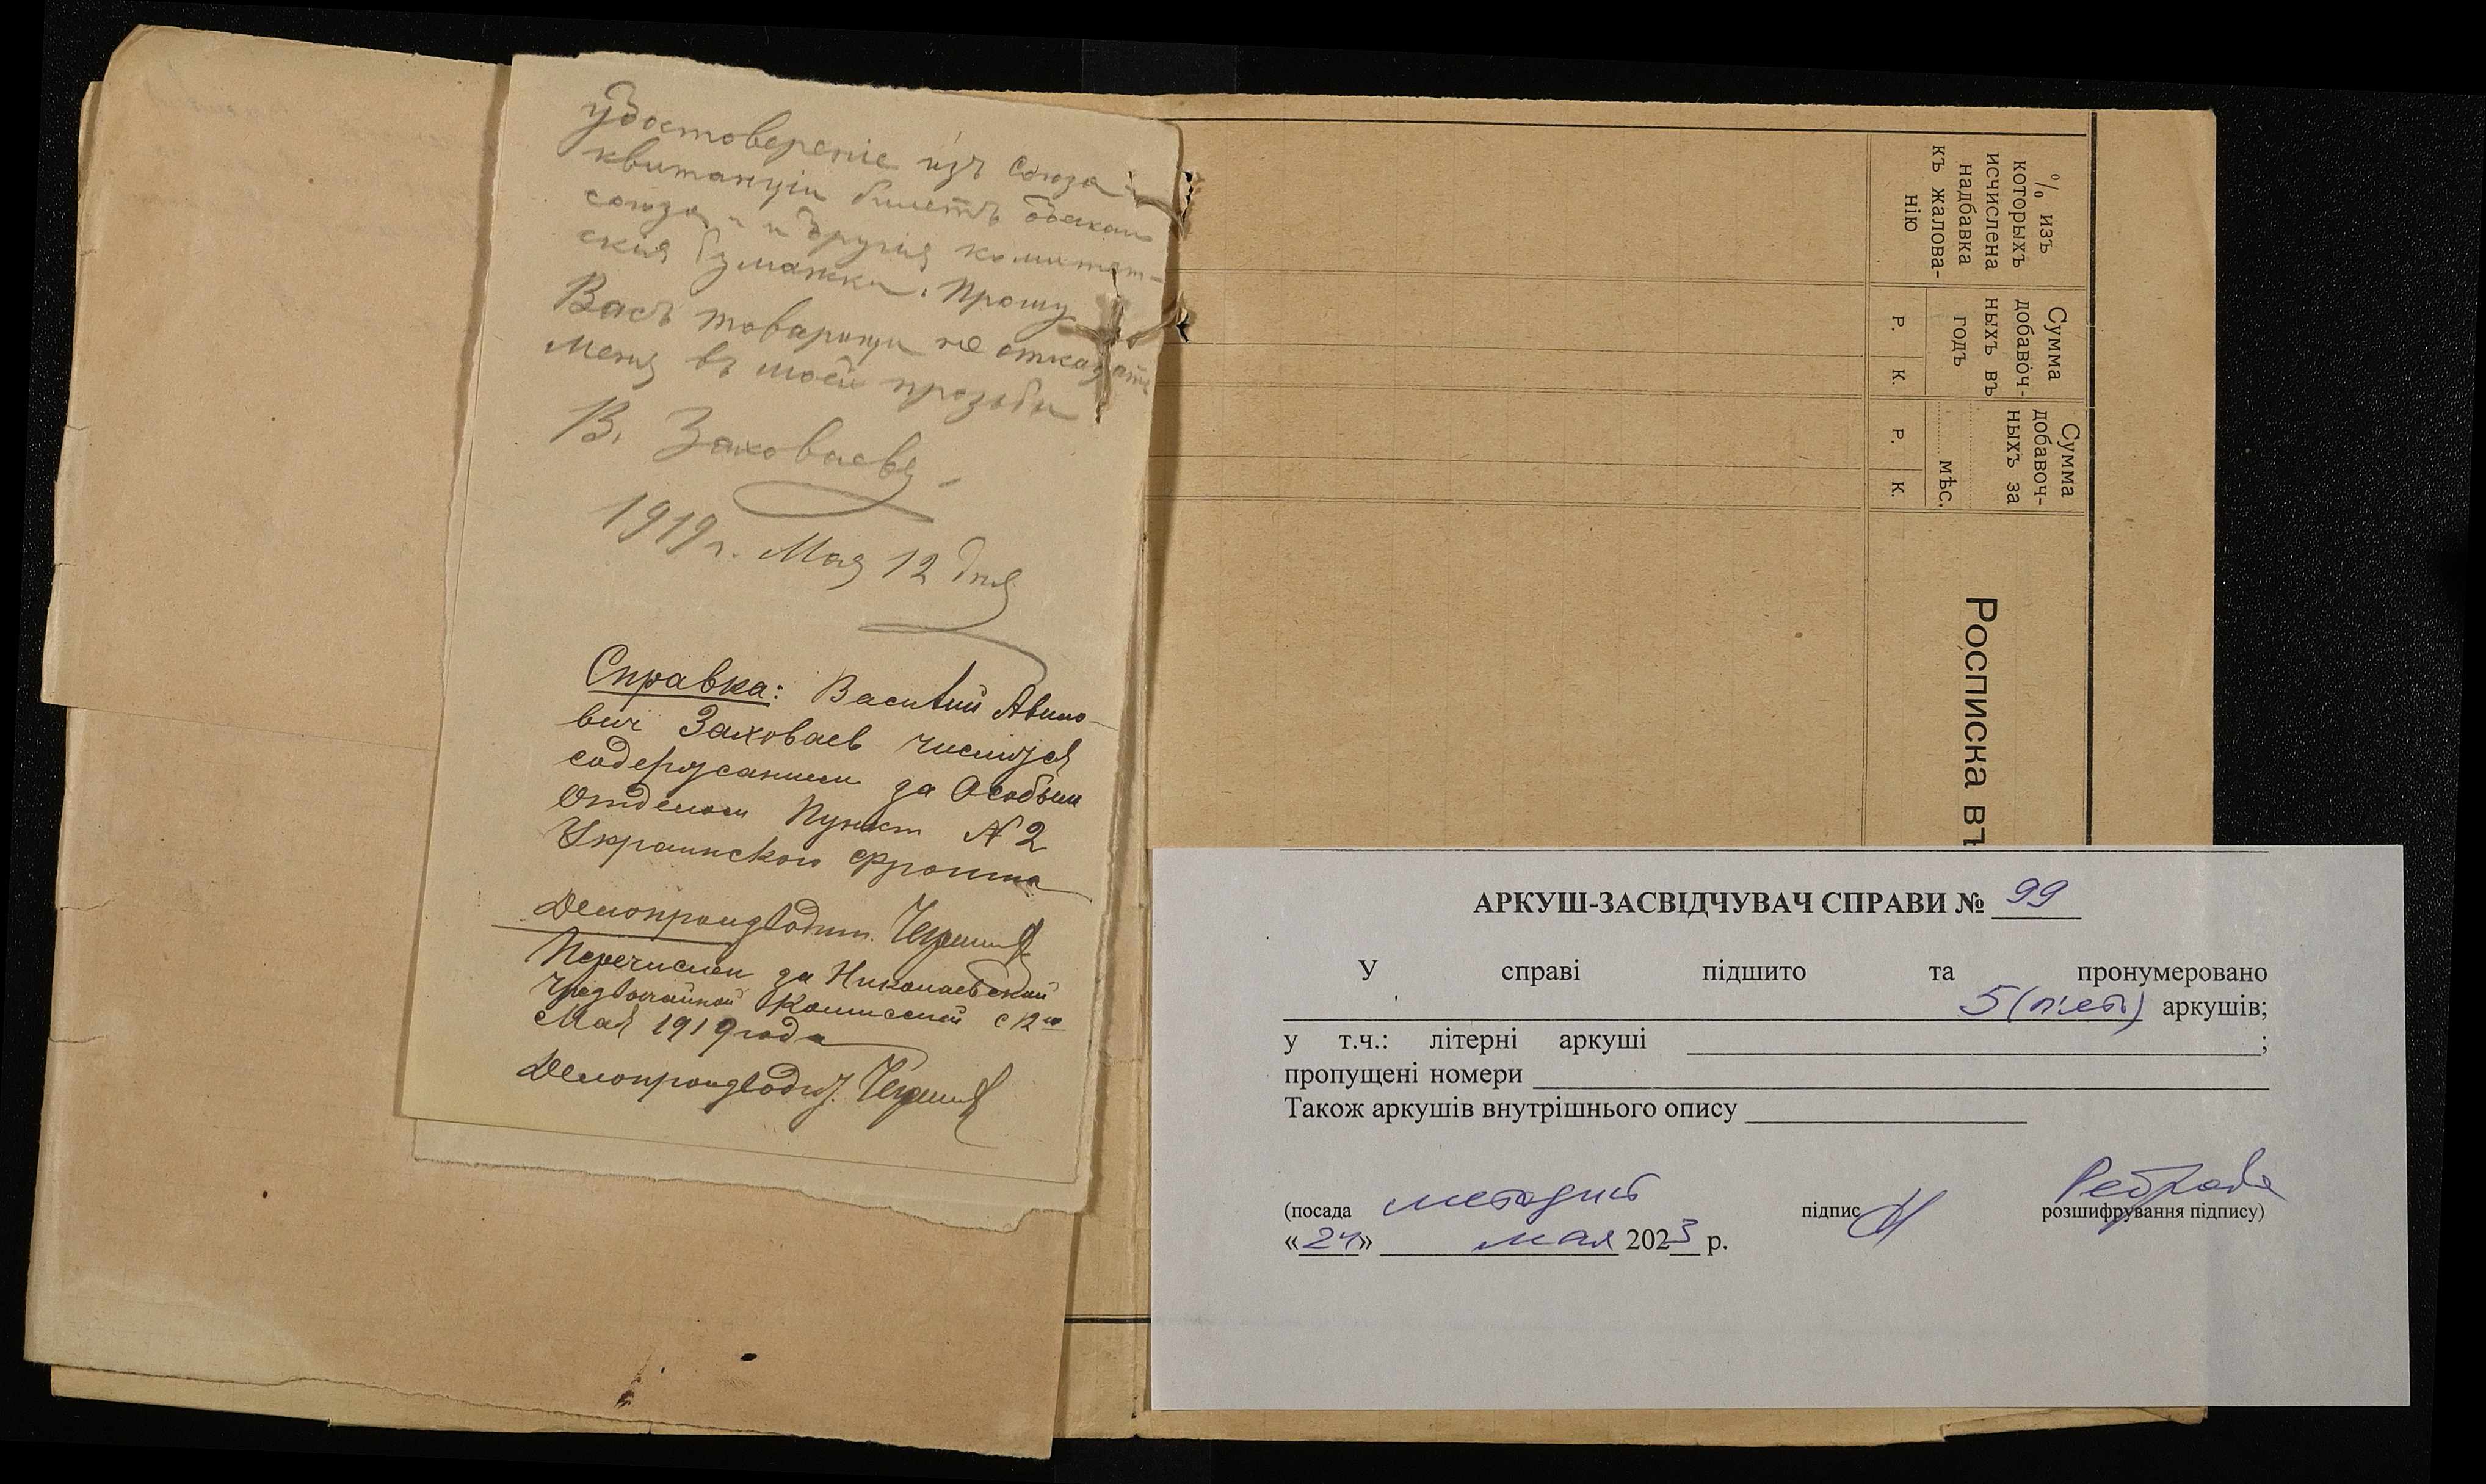 удостоверение изъ союза
квитанціи билетъ
союза и другія комитет-
скія бумажки. Прошу
Васъ товарищи не отказать
меня въ моей прозьби
В. Заховаевъ
1919 г. Мая 12 дня
Справка: Василий Авило-
вич Заховаев числится
содержанием за Особым
Отделом Пункт N 2
Украинского фронта
Делопроизводит.
Перечислен за Николаевской
Чрезвычайной Комиссией с 12го
Мая 1919 года
Делопроизвод.
% изъ
которыхъ
исчислена
надбавка
къ жалова-
нію
Сумма
добавоч-
ныхъ въ
годъ
Р.
К.
Сумма
добавоч-
ныхъ за
мѣс.
Р.
К.
Росписка въ
АРКУШ-ЗАСВІДЧУВАЧ СПРАВИ № 99
У справі підшито та пронумеровано
5 (п'ять) аркушів;
у т.ч.: літерні аркуші ;
пропущені номери
Також аркушів внутрішнього опису
(посада методист підпис розшифрування підпису)
«24» мая 2023 р.